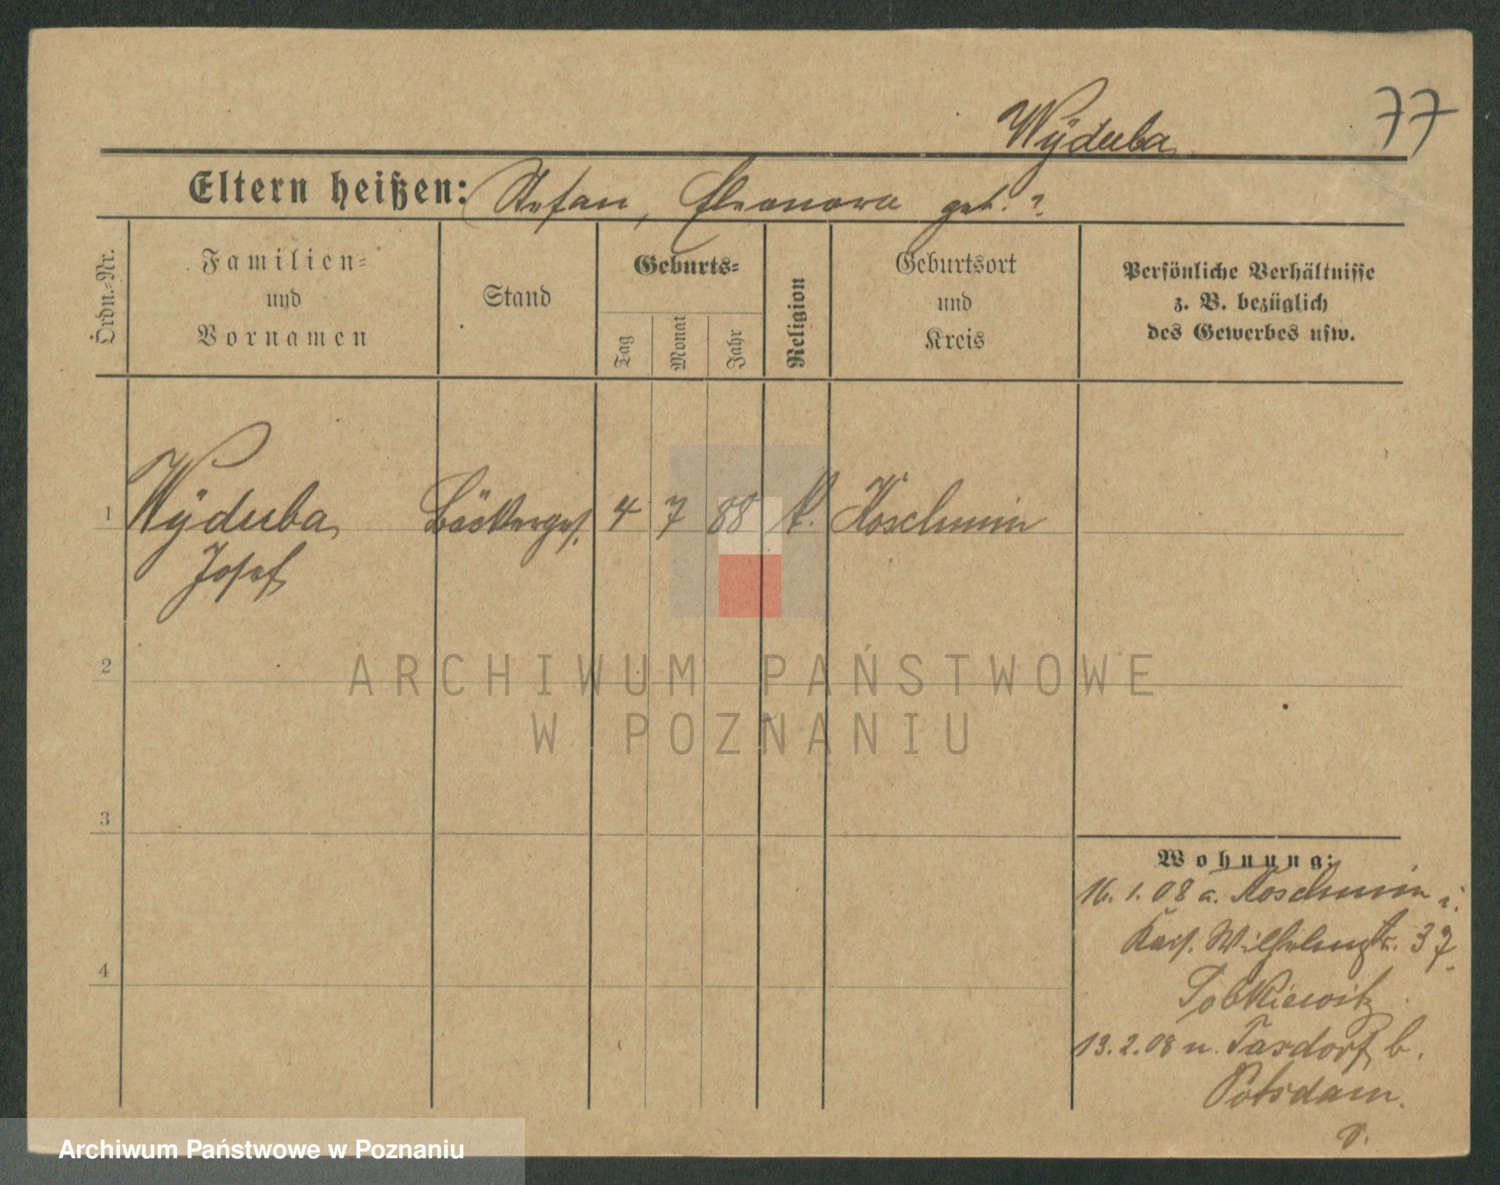 Wÿduba
77
Eltern heißen: Stefan, Eleonora geb. ?
Ordn.-Nr.
Familien-
und
Vornamen
Stand
Geburts-
Tag
Monat
Jahr
Religion
Geburtsort
und
Kreis
Persönliche Verhältnisse
z. B. bezüglich
des Gewerbes usw.
1 Wÿduba Bäckerges. 4 7 88 k. Koschmin
Josef
2
3
4
Wohnung:
16. 1. 08 a. Koschmin i.
Wilhelmstr. 37
13. 2. 08 n. Tasdorf b.
Potsdam.
ARCHIWUM PAŃSTWOWE
W POZNANIU
Archiwum Państwowe w Poznaniu